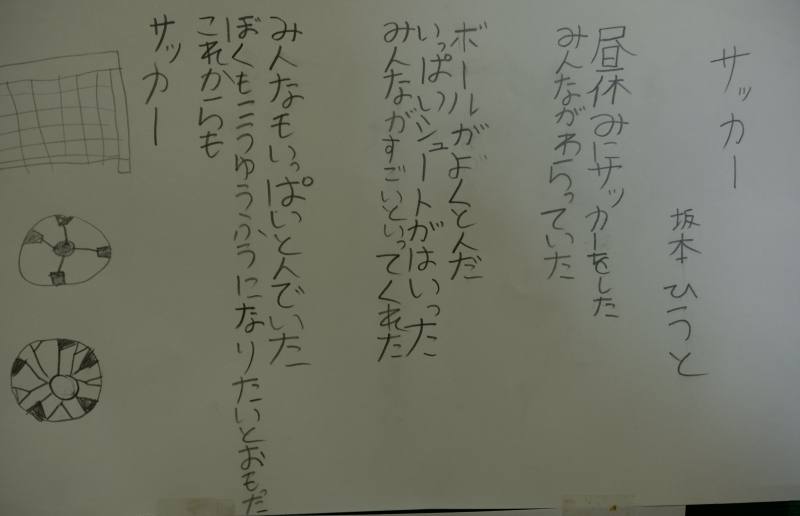 サッカー
坂本 ひうと
昼休みにサッカーをした
みんながわらっていた
ボールがよくとんだ
いっぱいシュートがはいった
みんながすごいといってくれた
みんなもいっぱいとんでいた
ぼくもこうゆうふうになりたいとおもった
これからも
サッカー